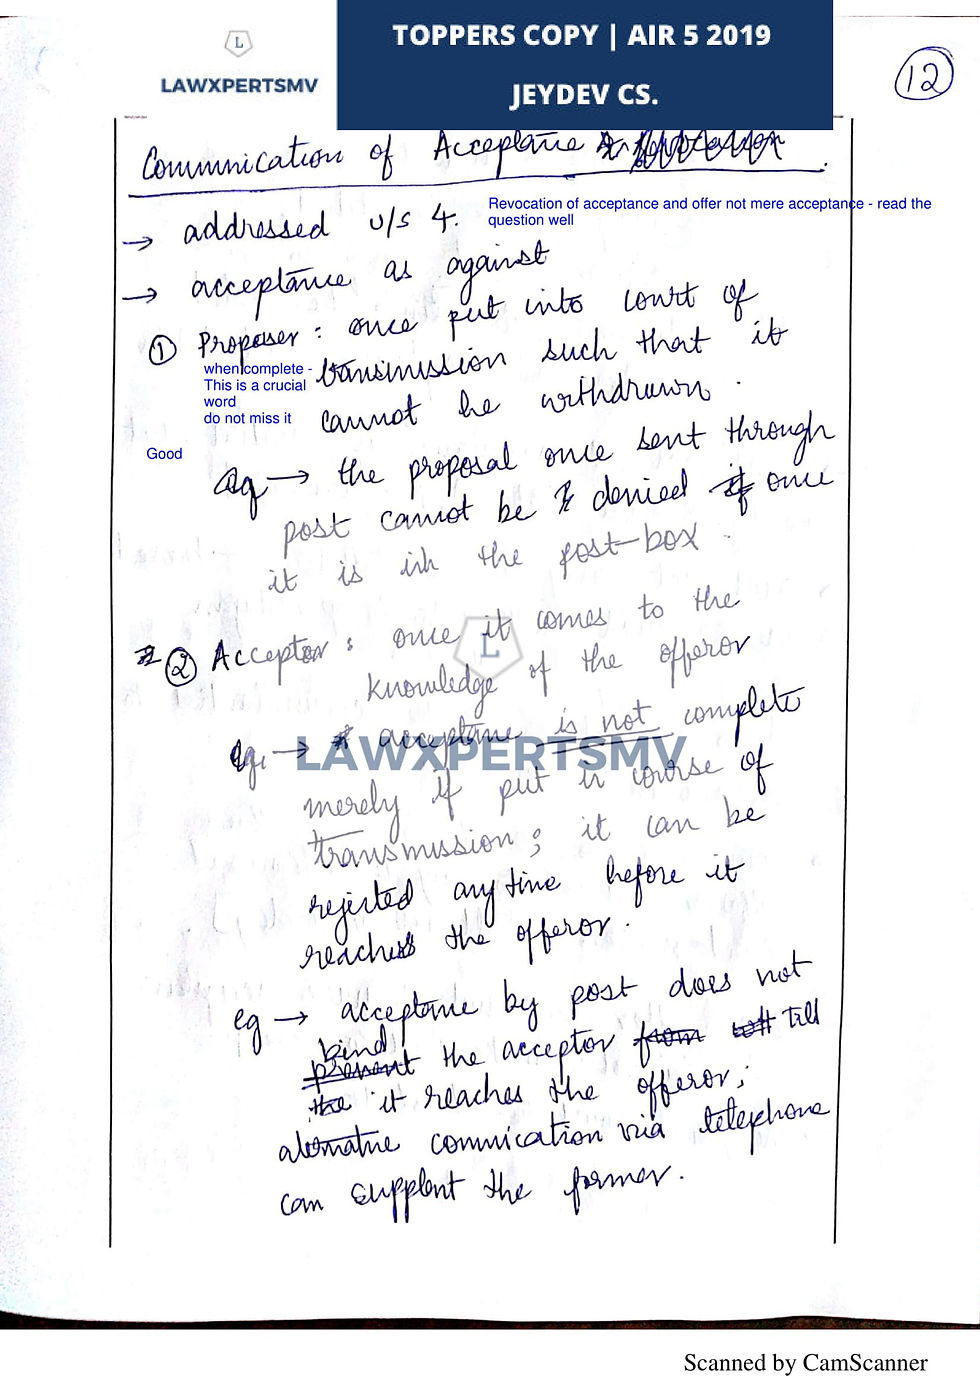 LAWXPERTSMV
TOPPERS COPY | AIR 5 2019
JEYDEV CS.
12
Communication of Acceptance
→ addressed u/s 4.
Revocation of acceptance and offer not mere acceptance - read the
question well
→ acceptance as against
① Proposer : once put into court of
transmission such that it
cannot be withdrawn.
when complete -
This is a crucial
word
do not miss it
Good
eg → the proposal once sent through
post cannot be denied if once
it is in the post-box.
② Acceptor : once it comes to the
knowledge of the offeror
eg. → acceptance is not complete
merely if put in course of
transmission; it can be
rejected any time before it
reaches the offeror.
LAWXPERTSMV
eg → acceptance by post does not
bind
prevent the acceptor from till
the it reaches the offeror;
alternative commnication via telephone
can supplant the former.
Scanned by CamScanner